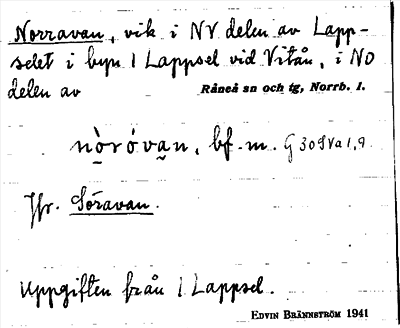 Norravan, vik i NV delen av Lapp-
selet i byn 1 Lappsel vid Vitån, i NO
delen av Råneå sn och tg, Norrb. l.
nòróvan, bf. m. G 30 S Va 1, 9.
Jfr. Söravan.
Uppgiften från 1 Lappsel.
EDVIN BRÄNNSTRÖM 1941